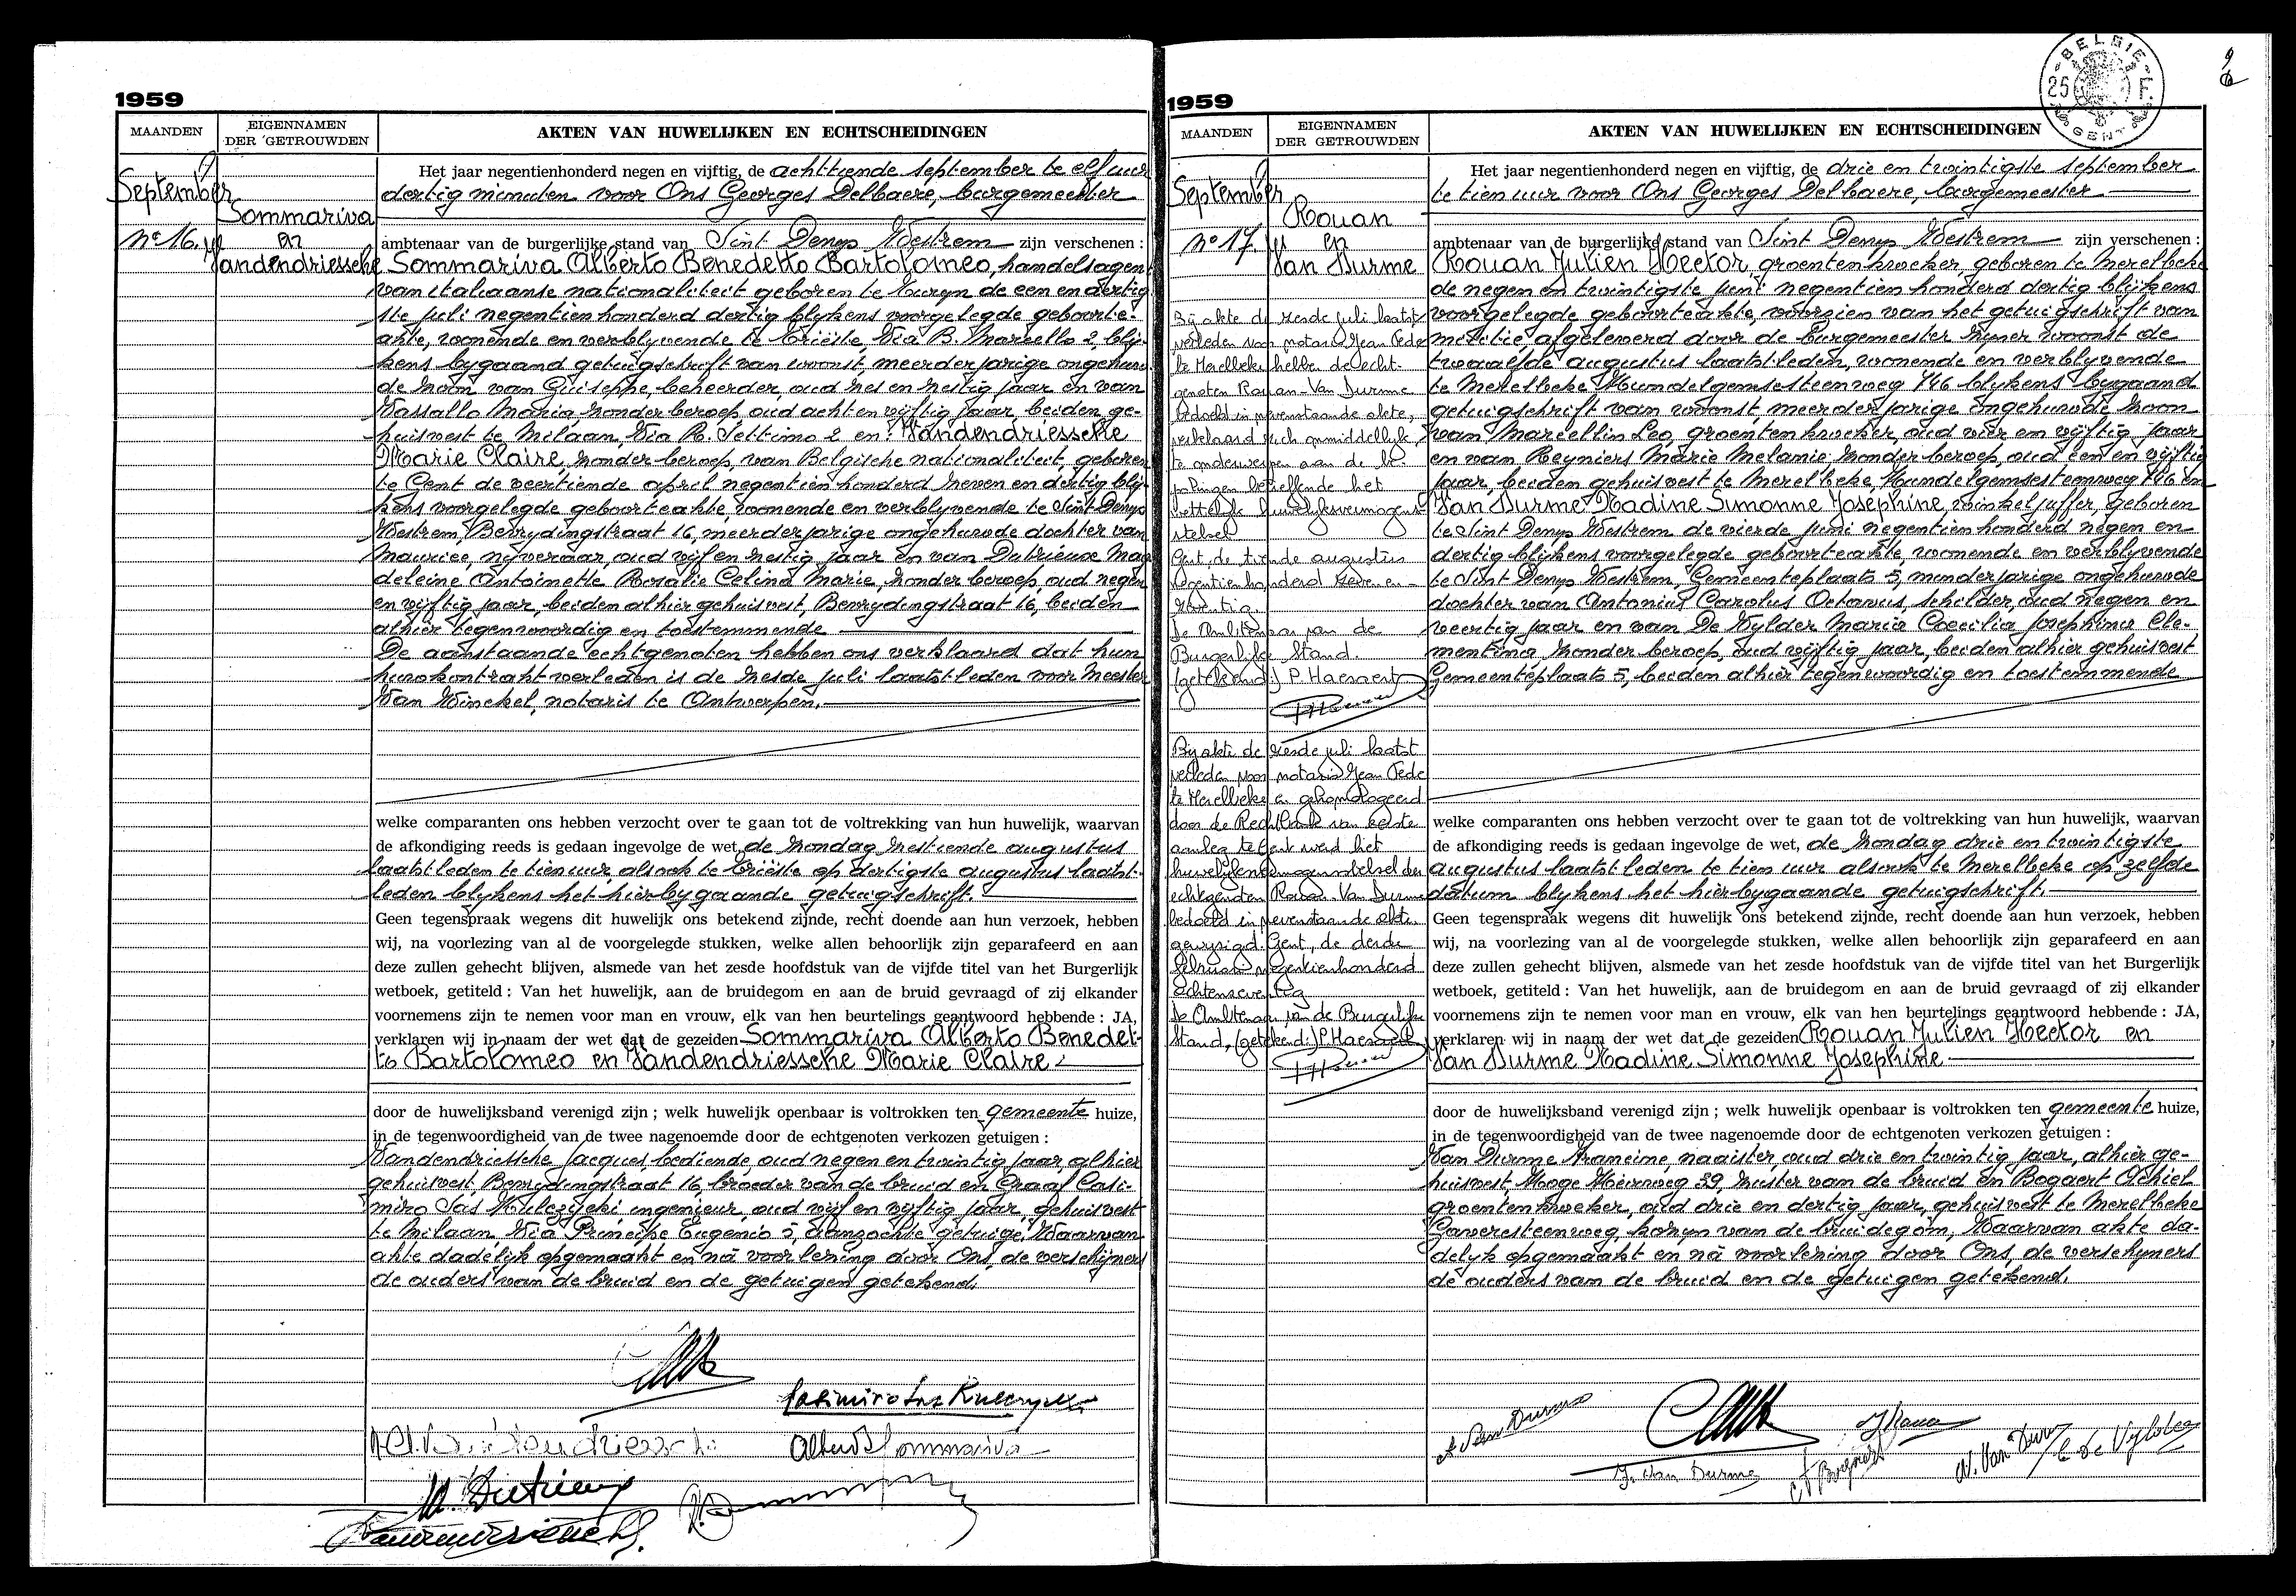 1959
MAANDEN
EIGENNAMEN
DER GETROUWDEN
AKTEN VAN HUWELIJKEN EN ECHTSCHEIDINGEN
September
No 16.
Sommariva
en
Vandendriessche
Het jaar negentienhonderd negen en vijftig, de achttiende september te elf uur
dertig minuten voor Ons Georges Delbaere, burgemeester
ambtenaar van de burgerlijke stand van Sint Denys Westrem zijn verschenen :
Sommariva Alberto Benedetto Bartolomeo, handelsagent
van italiaanse nationaliteit geboren te Turyn de een en dertig
ste juli negentien honderd dertig blykens voorgelegde geboorte-
akte, wonende en verblyvende te Triëste, Via B. Marcello 2, bly-
kens bygaand getuigschrift van woonst, meerderjarige ongehuw-
de zoon van Guiseppe, beheerder, oud zes en zestig jaar en van
Vassallo Maria, zonder beroep, oud acht en vyftig jaar, beiden ge-
huisvest te Milaan, Via R. Settimo 2 en: Vandendriessche
Marie Claire, zonder beroep, van Belgische nationaliteit, geboren
te Gent de veertiende april negentien honderd zeven en dertig bly-
kens voorgelegde geboorteakte, wonende en verblyvende te Sint Denys
Westrem, Bevrydingstraat 16, meerderjarige ongehuwde dochter van
Maurice, nyveraar, oud vyf en zestig jaar en van Dutrieux Mag
deleine Antoinette Rosalie Celina Marie, zonder beroep, oud negen
en vyftig jaar, beiden alhier gehuisvest, Bevrydingstraat 16, beiden
alhier tegenwoordig en toestemmende
De aanstaande echtgenoten hebben ons verklaard dat hun
huwkontrakt verleden is de zesde juli laatstleden voor Meester
Van Winckel, notaris te Antwerpen.
welke comparanten ons hebben verzocht over te gaan tot de voltrekking van hun huwelijk, waarvan
de afkondiging reeds is gedaan ingevolge de wet, de zondag zestiende augustus
laatstleden te tien uur, alsook te Triëste op dertigste augustus laatst-
leden blykens het hierbygaande getuigschrift.
Geen tegenspraak wegens dit huwelijk ons betekend zijnde, recht doende aan hun verzoek, hebben
wij, na voorlezing van al de voorgelegde stukken, welke allen behoorlijk zijn geparafeerd en aan
deze zullen gehecht blijven, alsmede van het zesde hoofdstuk van de vijfde titel van het Burgerlijk
wetboek, getiteld : Van het huwelijk, aan de bruidegom en aan de bruid gevraagd of zij elkander
voornemens zijn te nemen voor man en vrouw, elk van hen beurtelings geantwoord hebbende : JA,
verklaren wij in naam der wet dat de gezeiden Sommariva Alberto Benedet-
to Bartolomeo en Vandendriessche Marie Claire
door de huwelijksband verenigd zijn ; welk huwelijk openbaar is voltrokken ten gemeente huize,
in de tegenwoordigheid van de twee nagenoemde door de echtgenoten verkozen getuigen :
Vandendriessche Jacques, bediende, oud negen en twintig jaar, alhier
gehuisvest, Bevrydingstraat 16, broeder van de bruid en Graaf Casi-
miro Sas Kulczycki, ingenieur, oud vyf en vyftig jaar, gehuisvest
te Milaan, Via Principe Eugenio 5, aanzochte getuige, Waarvan
akte dadelyk opgemaakt en nà voorlezing door Ons, de verschyners
de ouders van de bruid en de getuigen getekend.
Casimiro Sas Kulczycki
Alberto Sommariva
M. Dutrieux
1959
MAANDEN
EIGENNAMEN
DER GETROUWDEN
AKTEN VAN HUWELIJKEN EN ECHTSCHEIDINGEN
BELGIE
25 F.
GENT
September
No 17.
Rouan
en
Van Durme
Bij akte de zesde juli laatst
verleden voor notaris Jean Tede
te Merelbeke hebben de echt-
genoten Rouan-Van Durme
bedoeld in nevenstaande akte,
verklaard zich onmiddellijk
te onderwerpen aan de be-
palingen betreffende het
wettelijk huwelijksvermogens
stelsel
Gent, de tiende augustus
negentienhonderd zeven en
zeventig
De Ambtenaar van de
Burgerlijke Stand.
(getekend) P. Haesaert
Bij akte de zesde juli laatst
verleden voor notaris Jean Tede
te Merelbeke en gehomologeerd
door de Rechtbank van eerste
aanleg te Gent werd het
huwelijksvermogensstelsel der
echtgenoten Rouan-Van Durme
bedoeld in nevenstaande akte
gewijzigd. Gent, de derde
februari negentienhonderd
achtenzeventig
De Ambtenaar van de Burgerlijke
Stand, (getekend:) P. Haesaert
Het jaar negentienhonderd negen en vijftig, de drie en twintigste september
te tien uur voor Ons Georges Delbaere, burgemeester
ambtenaar van de burgerlijke stand van Sint Denys Westrem zijn verschenen :
Rouan Julien Hector, groentenkweker, geboren te Merelbeke
de negen en twintigste juni negentien honderd dertig blijkens
voorgelegde geboorteakte, voorzien van het getuigschrift van
militie afgeleverd door de burgemeester zyner woonst de
twaalfde augustus laatstleden, wonende en verblyvende
te Merelbeke Hundelgemsesteenweg 746 blykens bygaand
getuigschrift van woonst, meerderjarige ongehuwde zoon
van Marcellin Leo, groentenkweker, oud vier en vyftig jaar
en van Reyniers Marie Melanie, zonder beroep, oud een en vyftig
jaar, beiden gehuisvest te Merelbeke, Hundelgemsesteenweg 746 en
Van Durme Nadine Simonne Joséphine, winkeljuffer, geboren
te Sint Denys Westrem de vierde juni negentien honderd negen en
dertig blykens voorgelegde geboorteakte, wonende en verblyvende
te Sint Denys Westrem, Gemeenteplaats 5, minderjarige ongehuwde
dochter van Antonius Carolus Octavus, schilder, oud negen en
veertig jaar en van De Wylder Maria Coecilia Josephina Cle-
mentina, zonder beroep, oud vyftig jaar, beiden alhier gehuisvest
Gemeenteplaats 5, beiden alhier tegenwoordig en toestemmende
welke comparanten ons hebben verzocht over te gaan tot de voltrekking van hun huwelijk, waarvan
de afkondiging reeds is gedaan ingevolge de wet, de zondag drie en twintigste
augustus laatstleden te tien uur alsook te Merelbeke op zelfde
datum blykens het hierbygaande getuigschrift.
Geen tegenspraak wegens dit huwelijk ons betekend zijnde, recht doende aan hun verzoek, hebben
wij, na voorlezing van al de voorgelegde stukken, welke allen behoorlijk zijn geparafeerd en aan
deze zullen gehecht blijven, alsmede van het zesde hoofdstuk van de vijfde titel van het Burgerlijk
wetboek, getiteld : Van het huwelijk, aan de bruidegom en aan de bruid gevraagd of zij elkander
voornemens zijn te nemen voor man en vrouw, elk van hen beurtelings geantwoord hebbende : JA,
verklaren wij in naam der wet dat de gezeiden Rouan Julien Hector en
Van Durme Nadine Simonne Josephine
door de huwelijksband verenigd zijn ; welk huwelijk openbaar is voltrokken ten gemeente huize,
in de tegenwoordigheid van de twee nagenoemde door de echtgenoten verkozen getuigen :
Van Durme Francine, naaister, oud drie en twintig jaar, alhier ge-
huisvest, Hoge Heirweg 39, zuster van de bruid en Bogaert Achiel
groentenkweker, oud drie en dertig jaar, gehuisvest te Merelbeke
Gaversteenweg, kozyn van de bruidegom, Waarvan akte da-
delyk opgemaakt en nà voorlezing door Ons, de verschyners
de ouders van de bruid en de getuigen getekend.
A Van Durme
J Rouan
F. Van Durme
A Bogaert
N. Van Durme